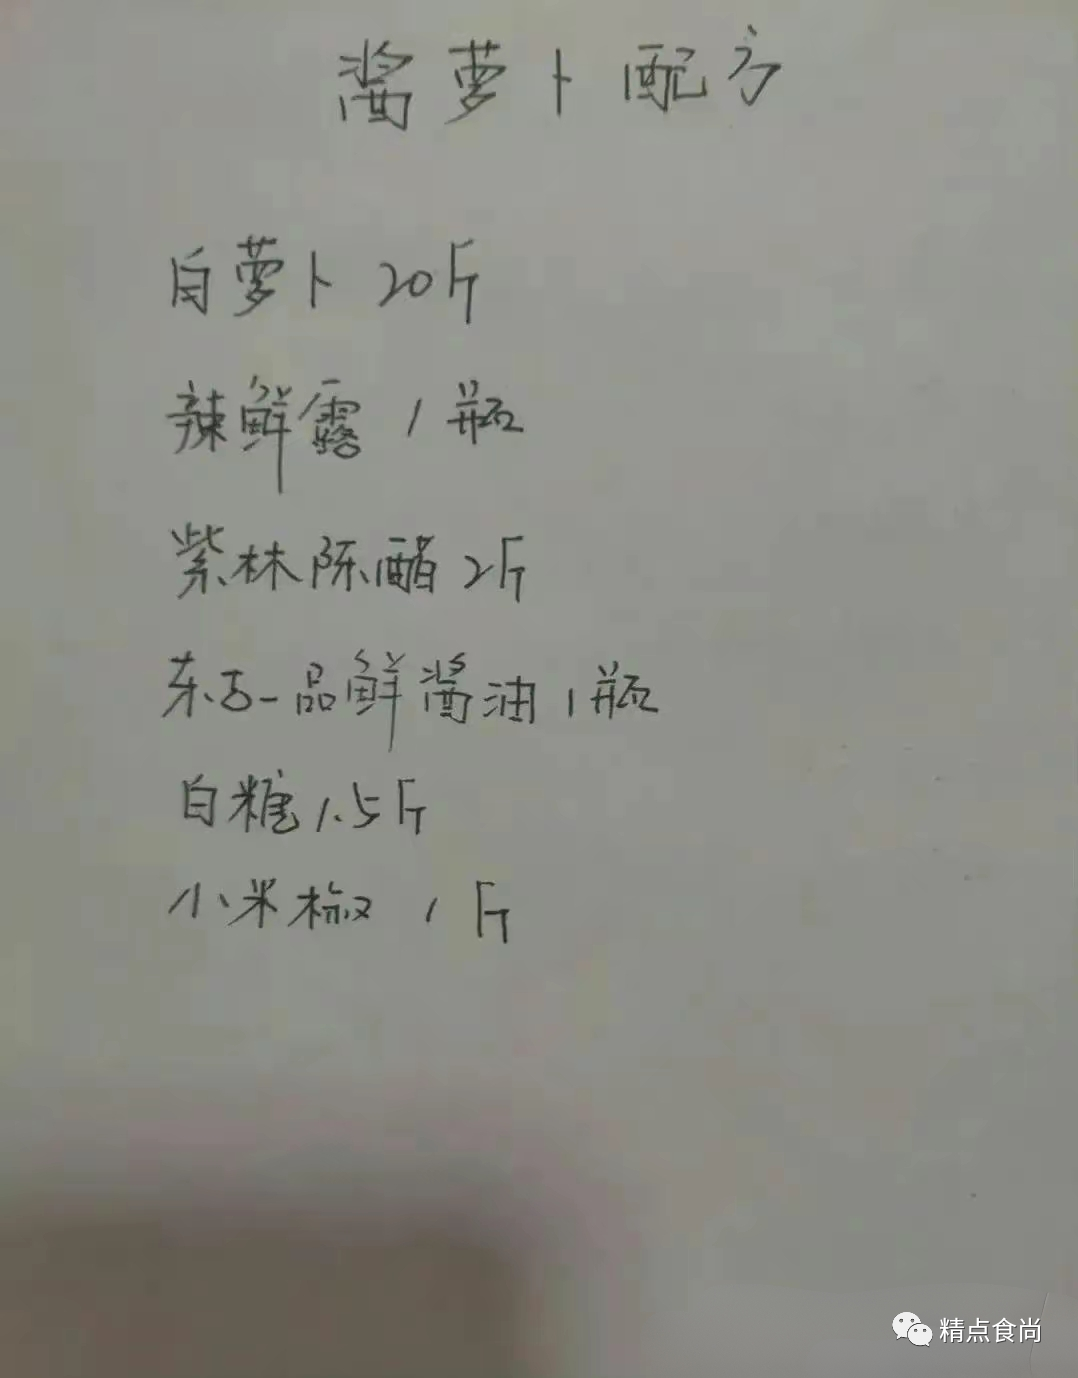 酱萝卜配方
白萝卜20斤
辣鲜露1瓶
紫林陈醋2斤
东古一品鲜酱油1瓶
白糖1.5斤
小米椒1斤
精点食尚